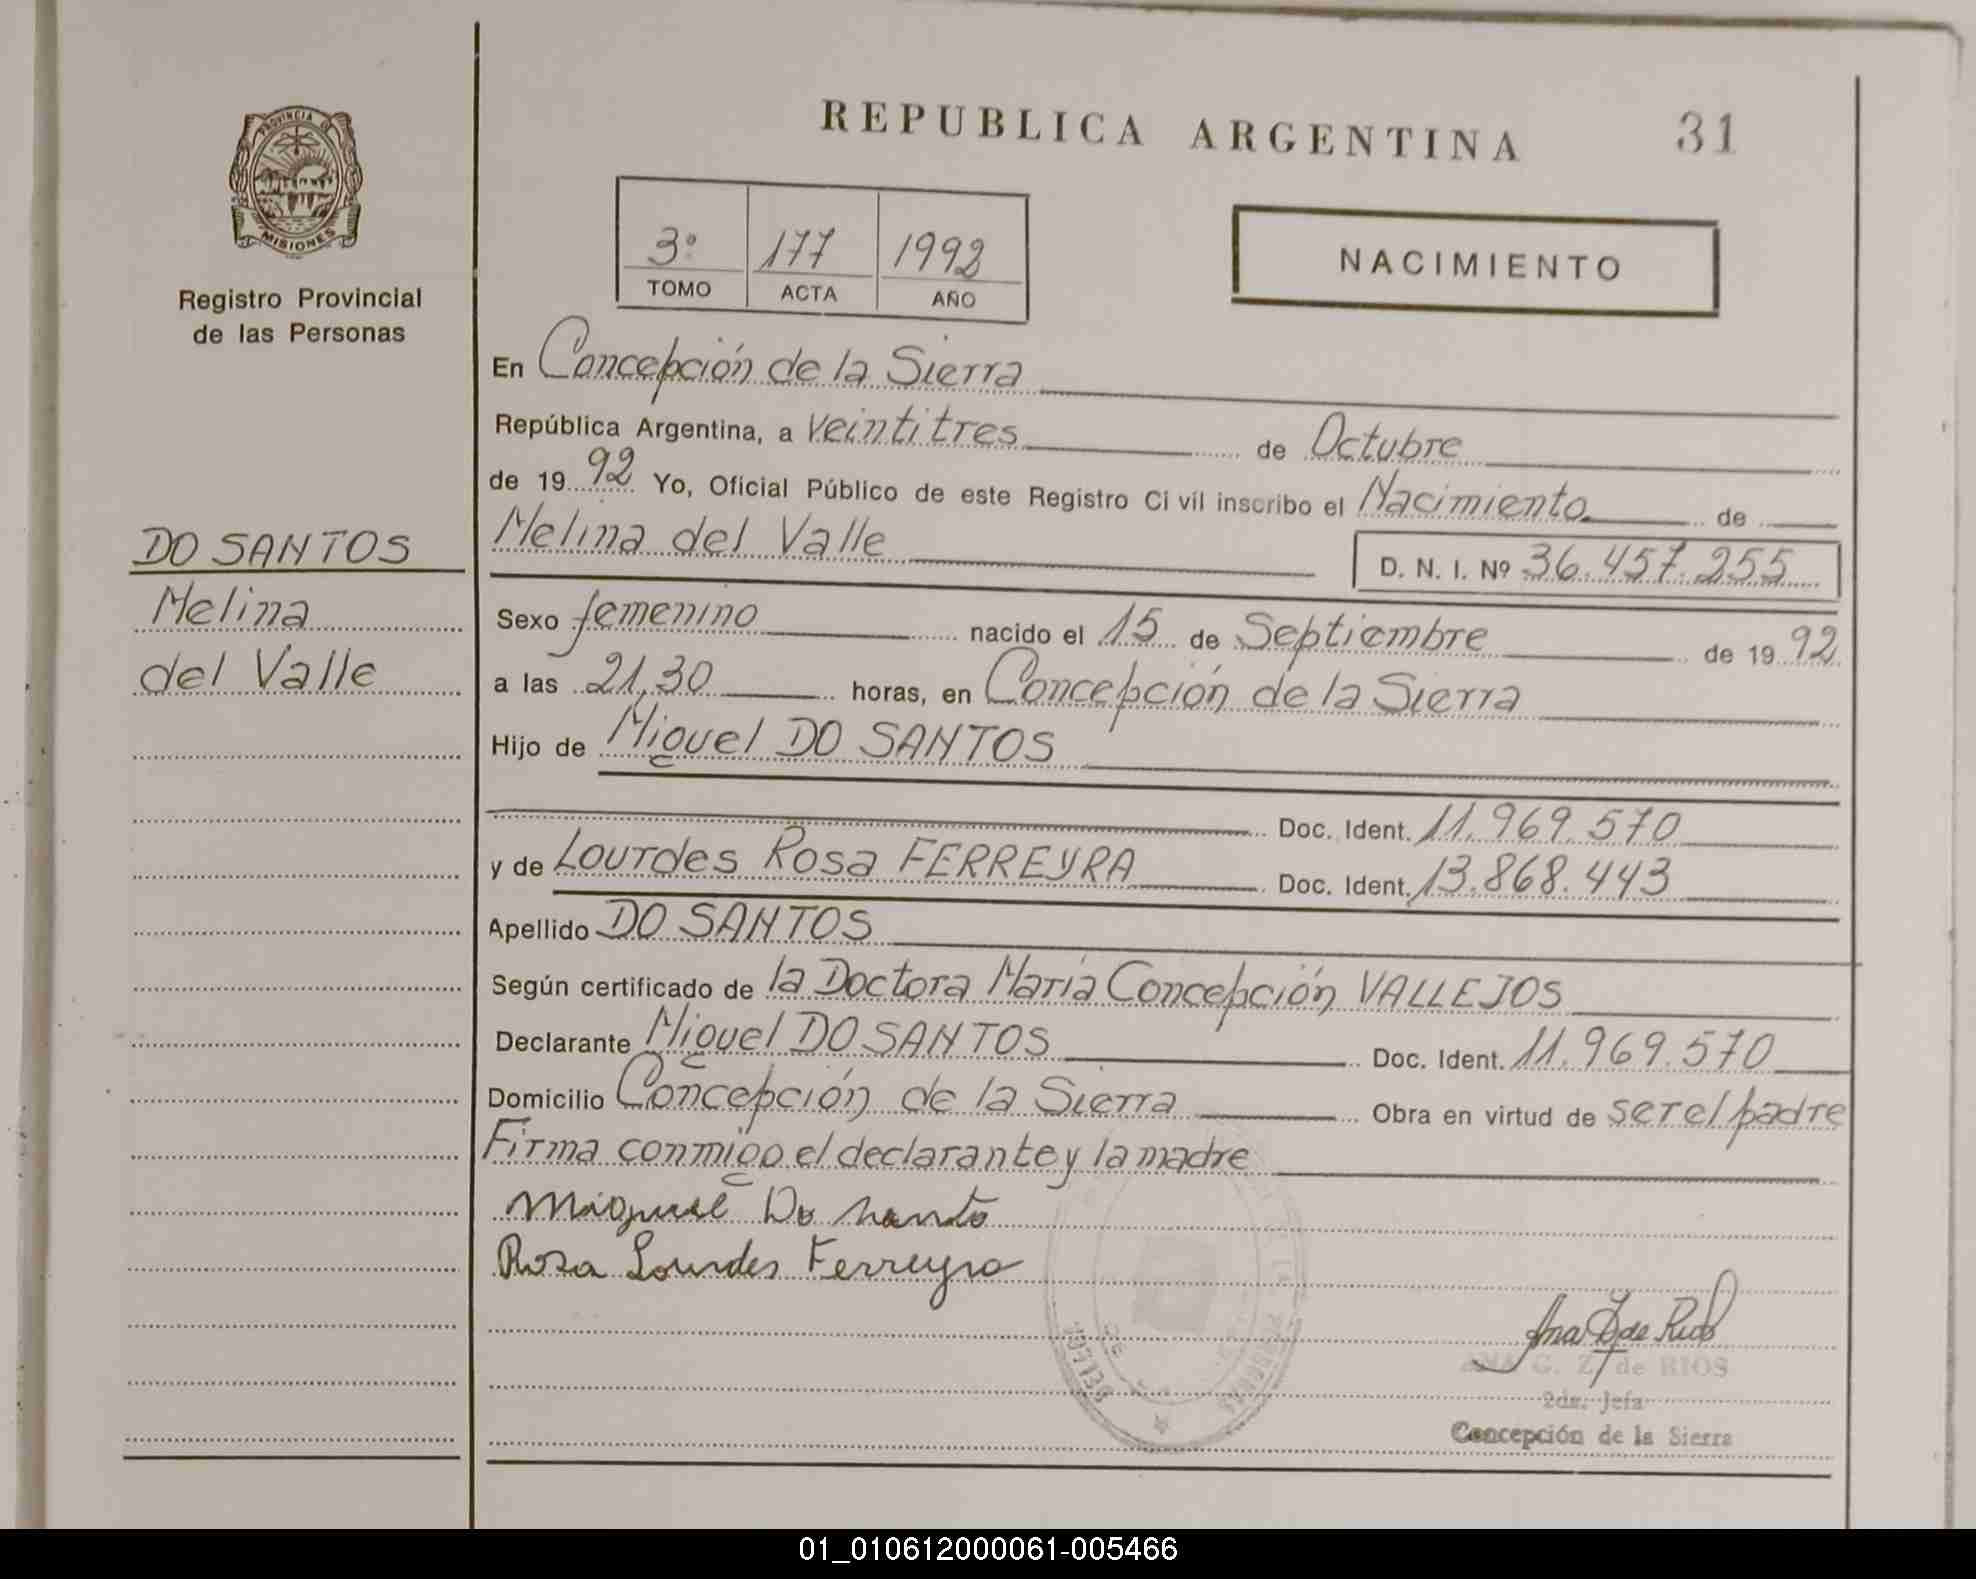 REPUBLICA ARGENTINA
31
PROVINCIA D
MISIONES
Registro Provincial
de las Personas
3º 177 1992
TOMO ACTA AÑO
NACIMIENTO
En Concepción de la Sierra
República Argentina, a veintitres de Octubre
de 19 92 Yo, Oficial Público de este Registro Ci vil inscribo el Nacimiento de
Melina del Valle
D. N. I. Nº 36.457.255
DO SANTOS
Melina
del Valle
Sexo femenino nacido el 15 de Septiembre de 19 92
a las 21,30 horas, en Concepción de la Sierra
Hijo de Miguel DO SANTOS
Doc. Ident. 11.969.570
y de Lourdes Rosa FERREYRA Doc. Ident. 13.868.443
Apellido DO SANTOS
Según certificado de la Doctora María Concepción VALLEJOS
Declarante Miguel DO SANTOS Doc. Ident. 11.969.570
Domicilio Concepción de la Sierra Obra en virtud de ser el padre
Firma conmigo el declarante y la madre
Miguel Do Santo
Rosa Lourdes Ferreyra
Ana Z de Rios
ANA G. Z. de RIOS
2da. Jefa
Concepción de la Sierra
01_010612000061-005466